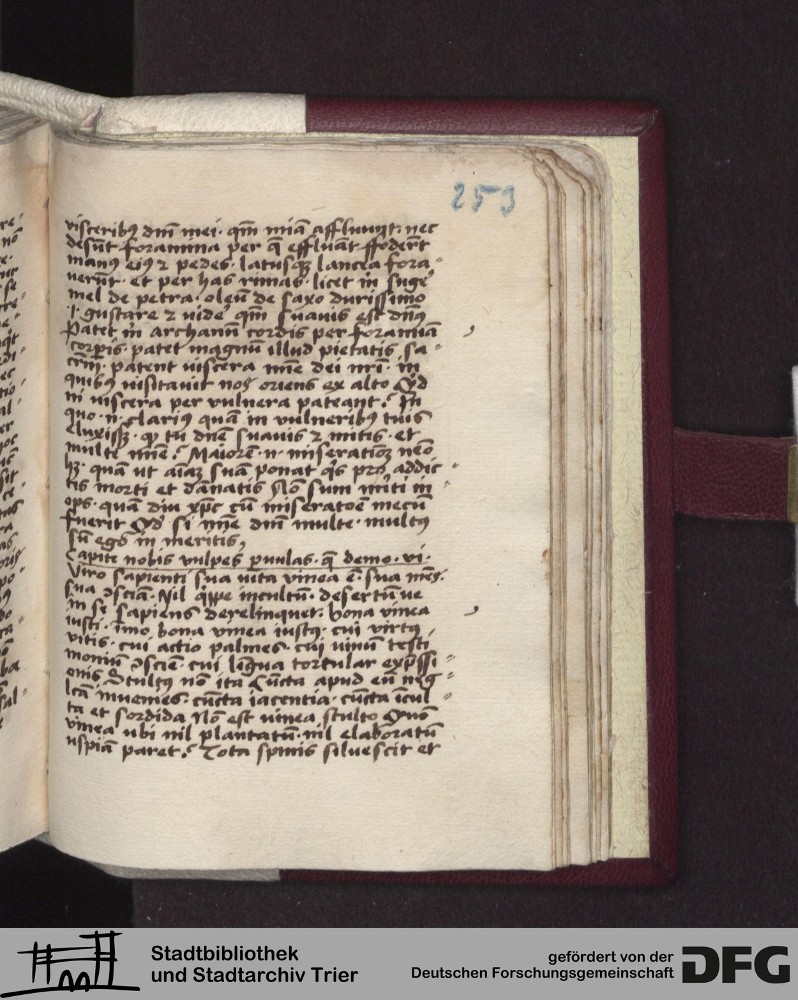 253
visceribꝰ dnī mei · qm̄ mīa affluunt · nec
desūt foramina per q̄ effluāt · ffoderūt
manꝰ eiꝰ ⁊ pedes · latusqꝫ lancea fora⸗
verūt · et per has rimas · licet m̄ suge
mel de petra · oleū de saxo durissimo
.i. gustare ⁊ videre qm̄ suavis est dn̄s
Patet m̄ archanū cordis per foramīa
corpīs · patet magnū illud pietatis sa⸗
crm̄ · patent viscera mīe dei nrī · in
quibꝰ visitavit nos oriens ex alto Qd
ni viscera per vulnera pateant? In
quo · n · clariꝰ quā in vulneribꝰ tuis
eluxissꝫ · qꝫ tu dn̄e suavis ⁊ mitis · et
multe mīe? Maiorē · n · miseratioꝫ nēo
hꝫ · quā ut aīaꝫ suā ponat qīs pro addic⸗
tis morti et dānatis Nō sum in
opis · quā diu xp̄c cū miseratōe mecū
fuerit Qd si mīe dnī multe · multꝰ
sū ego in meritis,
Capite nobis vulpes pvulas · q̄ demo · vi ·
Viro sapienti sua vita vinea ē · sua mēs ·
sua ↄscīa · Nil qīppe incultū · desertūve
in se sapiens derelinquet · bona vinea
iusti · īmo bona vinea iustꝰ · cui virtꝰ
vitis · cui actio palmes · cui vinū testi
moniū ↄscīe · cui lingua tortular exp̄ssi⸗
onis Stultꝰ nō ita Cūcta apud eū neg⸗
lcā inuenies · cūcta iacentia · cūcta īcul⸗
ta et sordida Nō est vinea stulto Quō
vinea ubi nil plantatū · nil elaboratū
uspiā paret? Tota spinis silvescit et
Stadtbibliothek
und Stadtarchiv Trier
gefördert von der
Deutschen Forschungsgemeinschaft
DFG